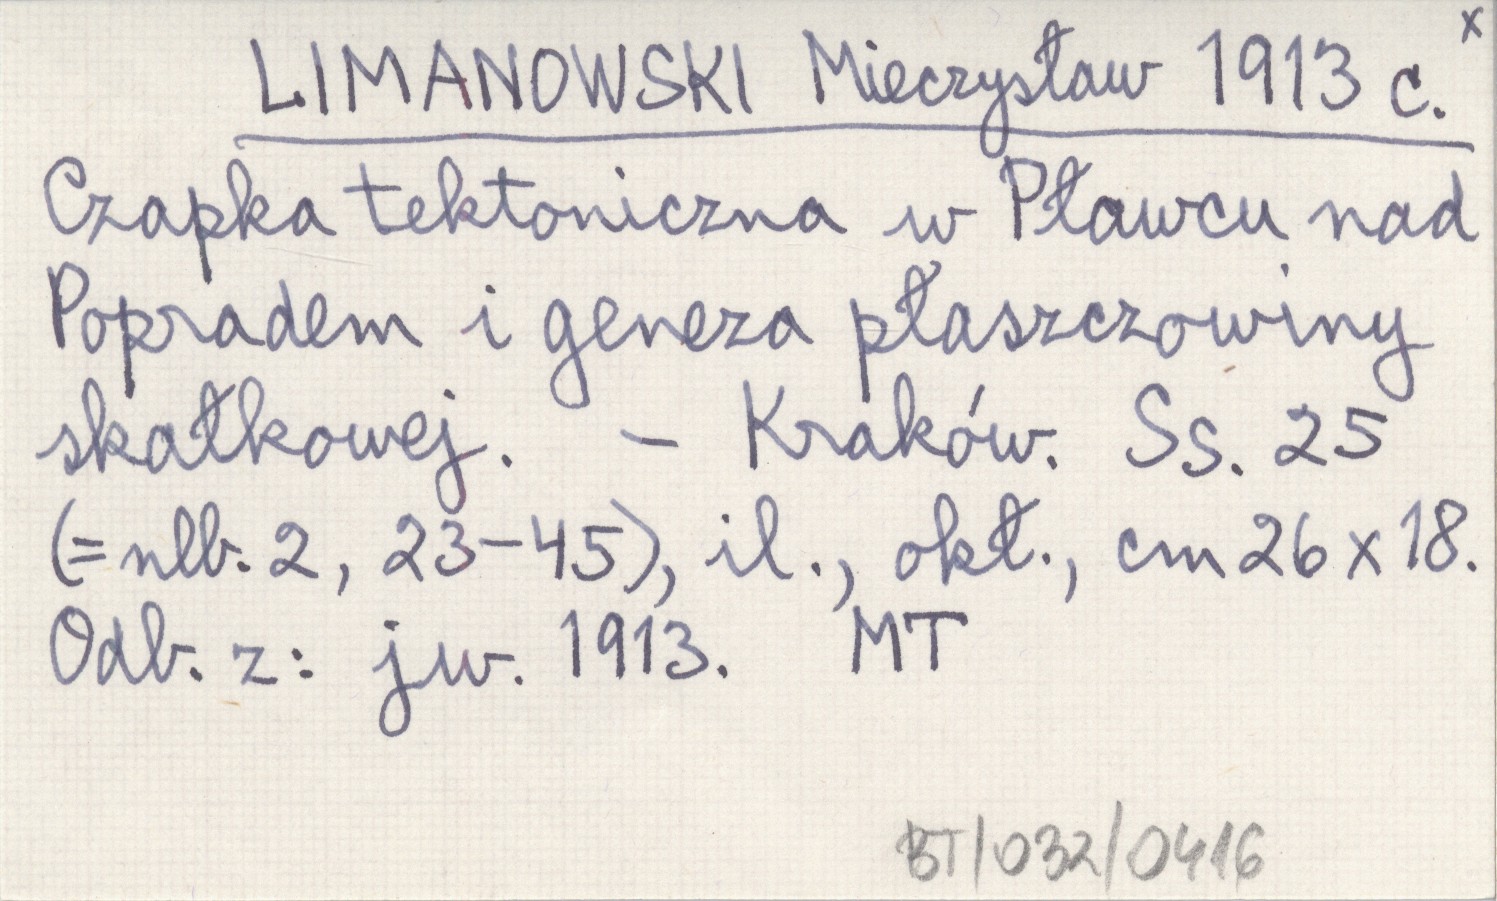 LIMANOWSKI Mieczysław 1913 c. x
Czapka tektoniczna w Pławcu nad
Popradem i geneza płaszczowiny
skałkowej. – Kraków. Ss. 25
(= nlb. 2, 23–45), il., okł., cm 26 x 18.
Odb. z: jw. 1913. MT
BT/032/0416